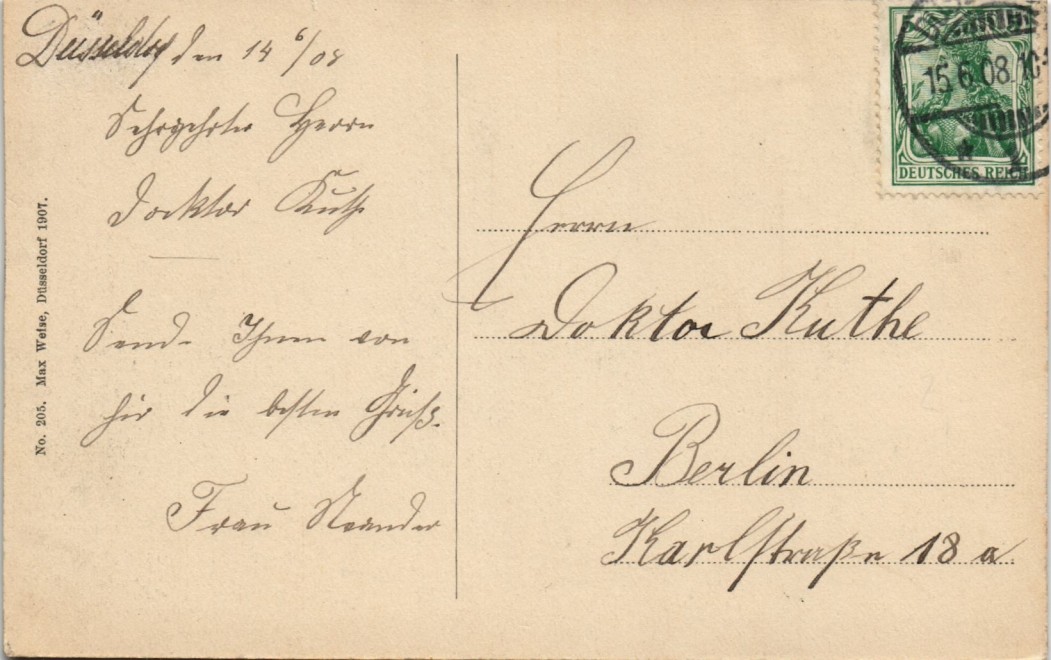 Düsseldorf den 14 6/08
Sehrgehrter Herrn
Docktor Kuthe
Send. Ihnen von
hir die besten Grüß.
Frau
Herrn
Doktor Kuthe
Berlin
Karlstraße 18 a
No. 205. Max Weise, Düsseldorf 1907.
15.6.08.10
DEUTSCHES REICH